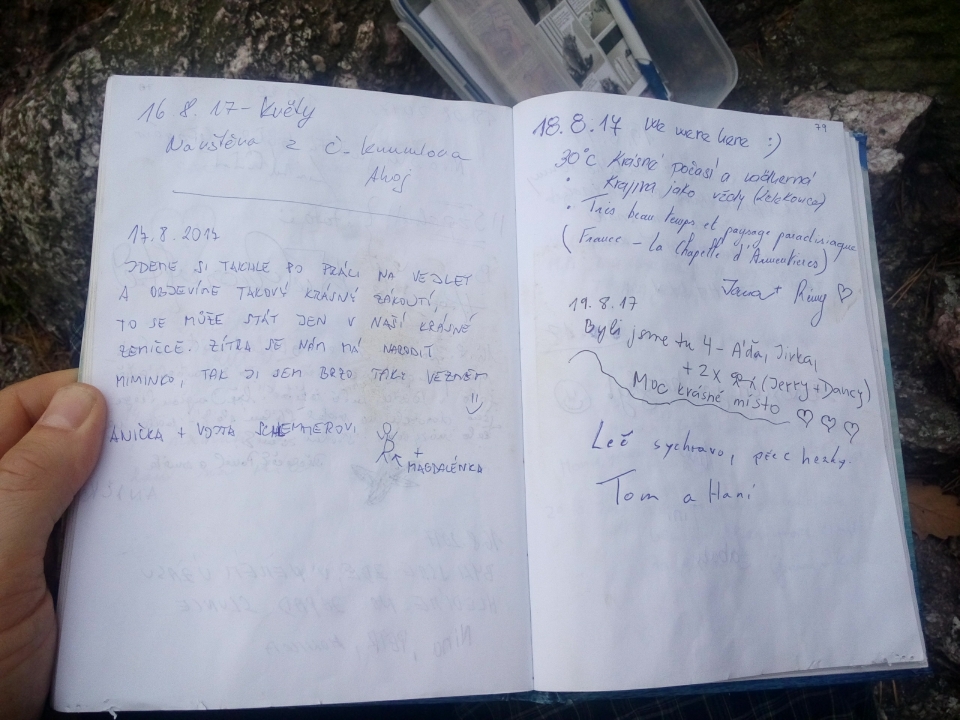 16.8.17 - Květy
Navštěva z Č. Krumlova
Ahoj
17.8.2017
JDEME SI TAKHLE PO PRÁCI NA VEJLET
A OBJEVÍME TAKOVÝ KRÁSNÝ ZÁKOUTÍ
TO SE MŮŽE STÁT JEN V NAŠÍ KRÁSNÉ
ZEMIČCE. ZÍTRA SE NÁM MÁ NARODIT
MIMINKO, TAK JI SEM BRZO TAKY VEZMEM
ANIČKA + VOJTA
+
MAGDALÉNKA
79
18.8.17 We were here :)
30°C Krásné počasí a nádherná
krajina jako vždy
• Très beau temps et paysage paradisiaque
(France - la Chapelle d'Armentières)
Jana + Rémy ♡
19.8.17
Byli jsme tu 4 - Áďa, Jirka,
+ 2x (Jerry + Dancy)
Moc krásné místo ♡ ♡ ♡
Leč sychravo, přec hezky.
Tom a Hani